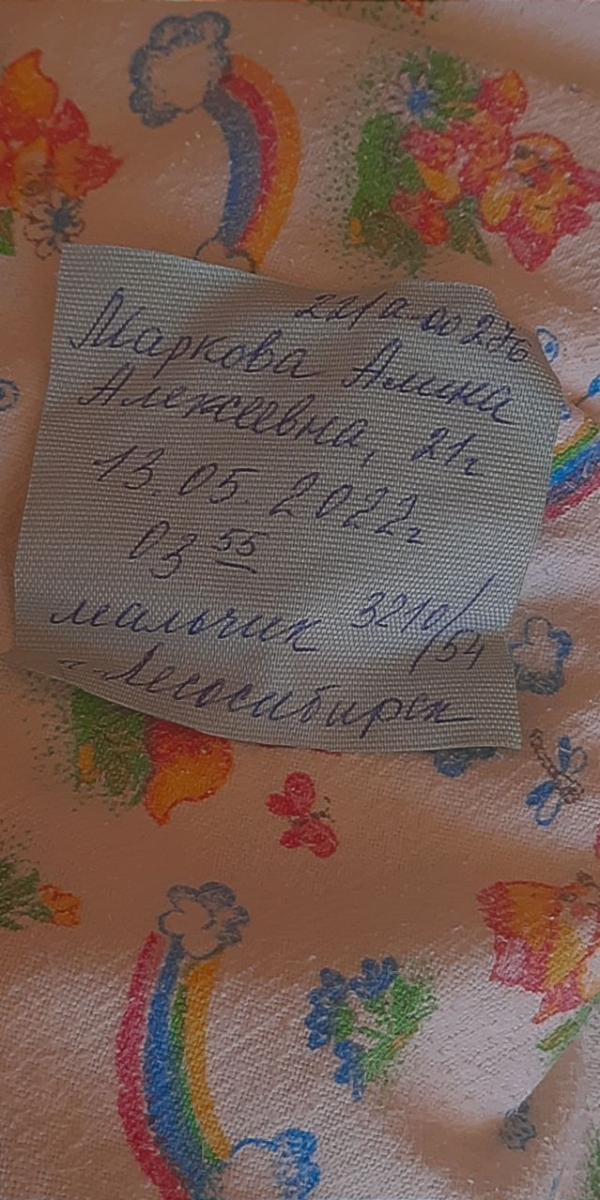 Маркова Алина
Алексеевна, 21г
13.05.2022г
03 55
мальчик 3210/54
г. Лесосибирск